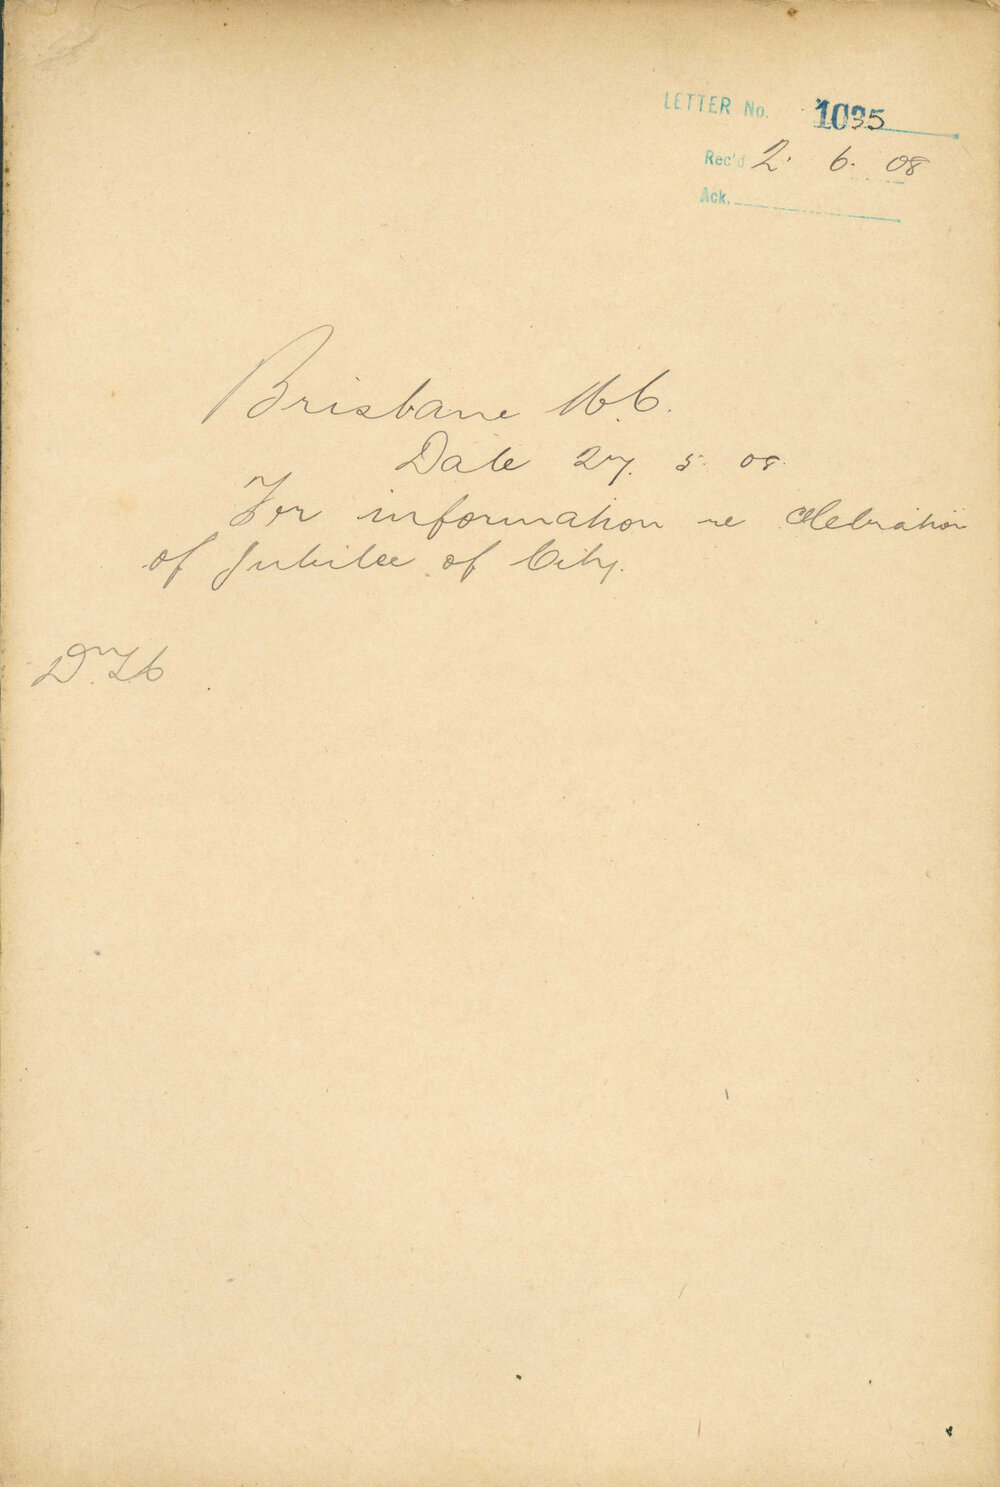 LETTER No. 1035
Rec'd 2. 6. 08
Ack.
Brisbane M.C.
Date 27. 5. 08.
For information re celebration
of Jubilee of City.